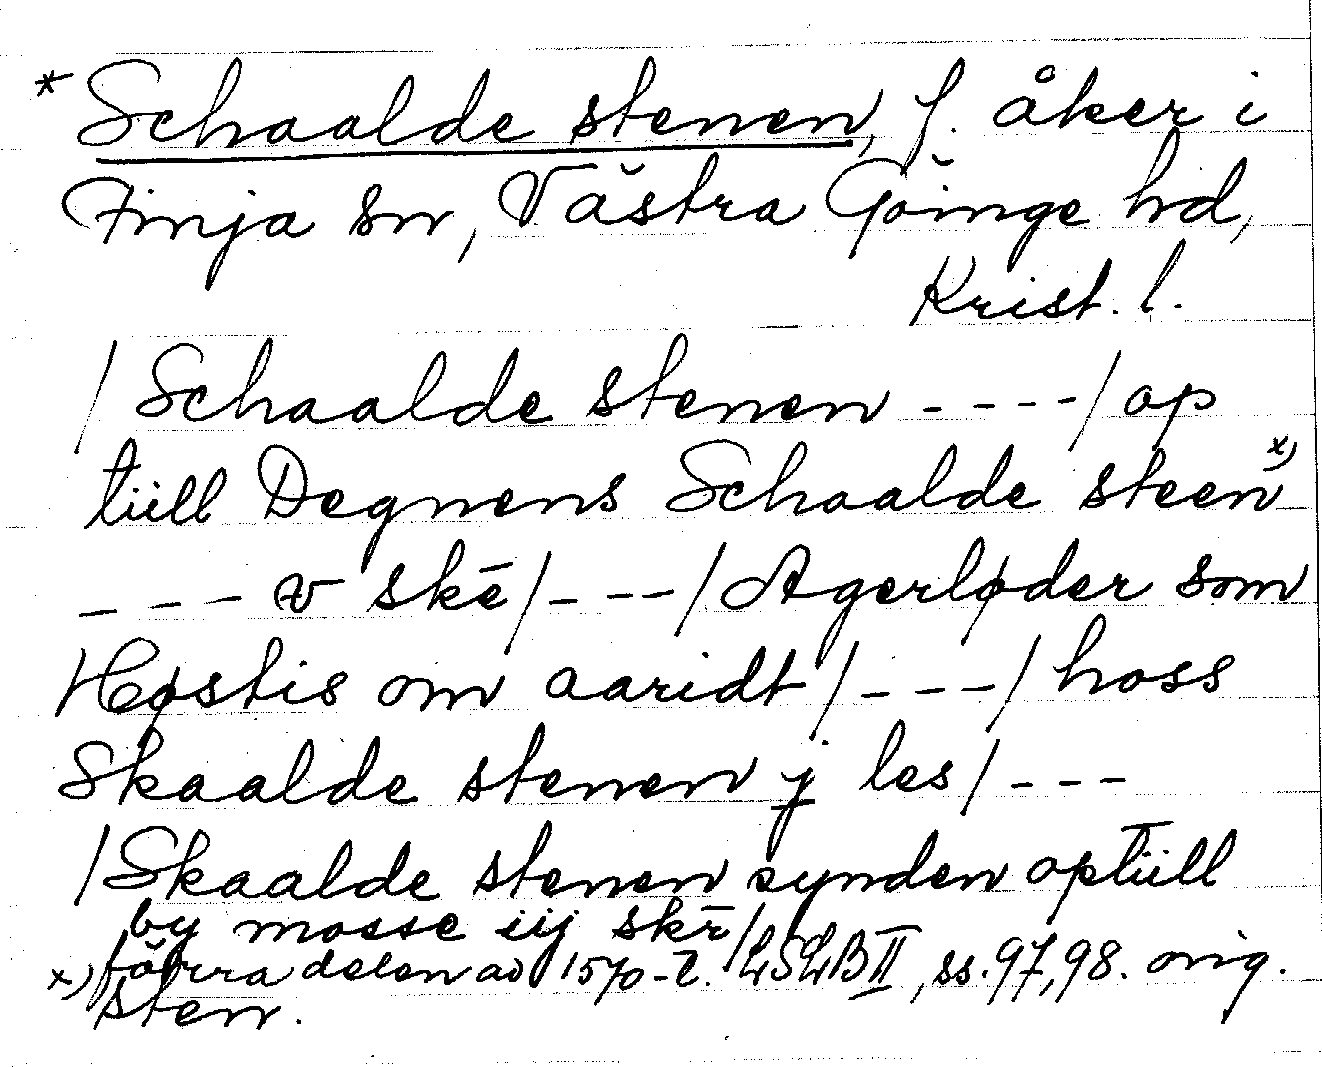 * Schaalde stenen, f. åker i
Finja sn, Västra Göinge hd,
Krist. l.
/ Schaalde stenen - - - - / op
tiill Degnens Schaalde steen x)
- - - v skē / - - - / Agerløder som
Høstis om aaridt / - - - / hoss
Skaalde stenen j les / - - -
/ Skaalde stenen synden optiill
by mosse iij skē /
förra delen av 1570-t. LSLB II, ss. 97, 98. orig.
x) sten.